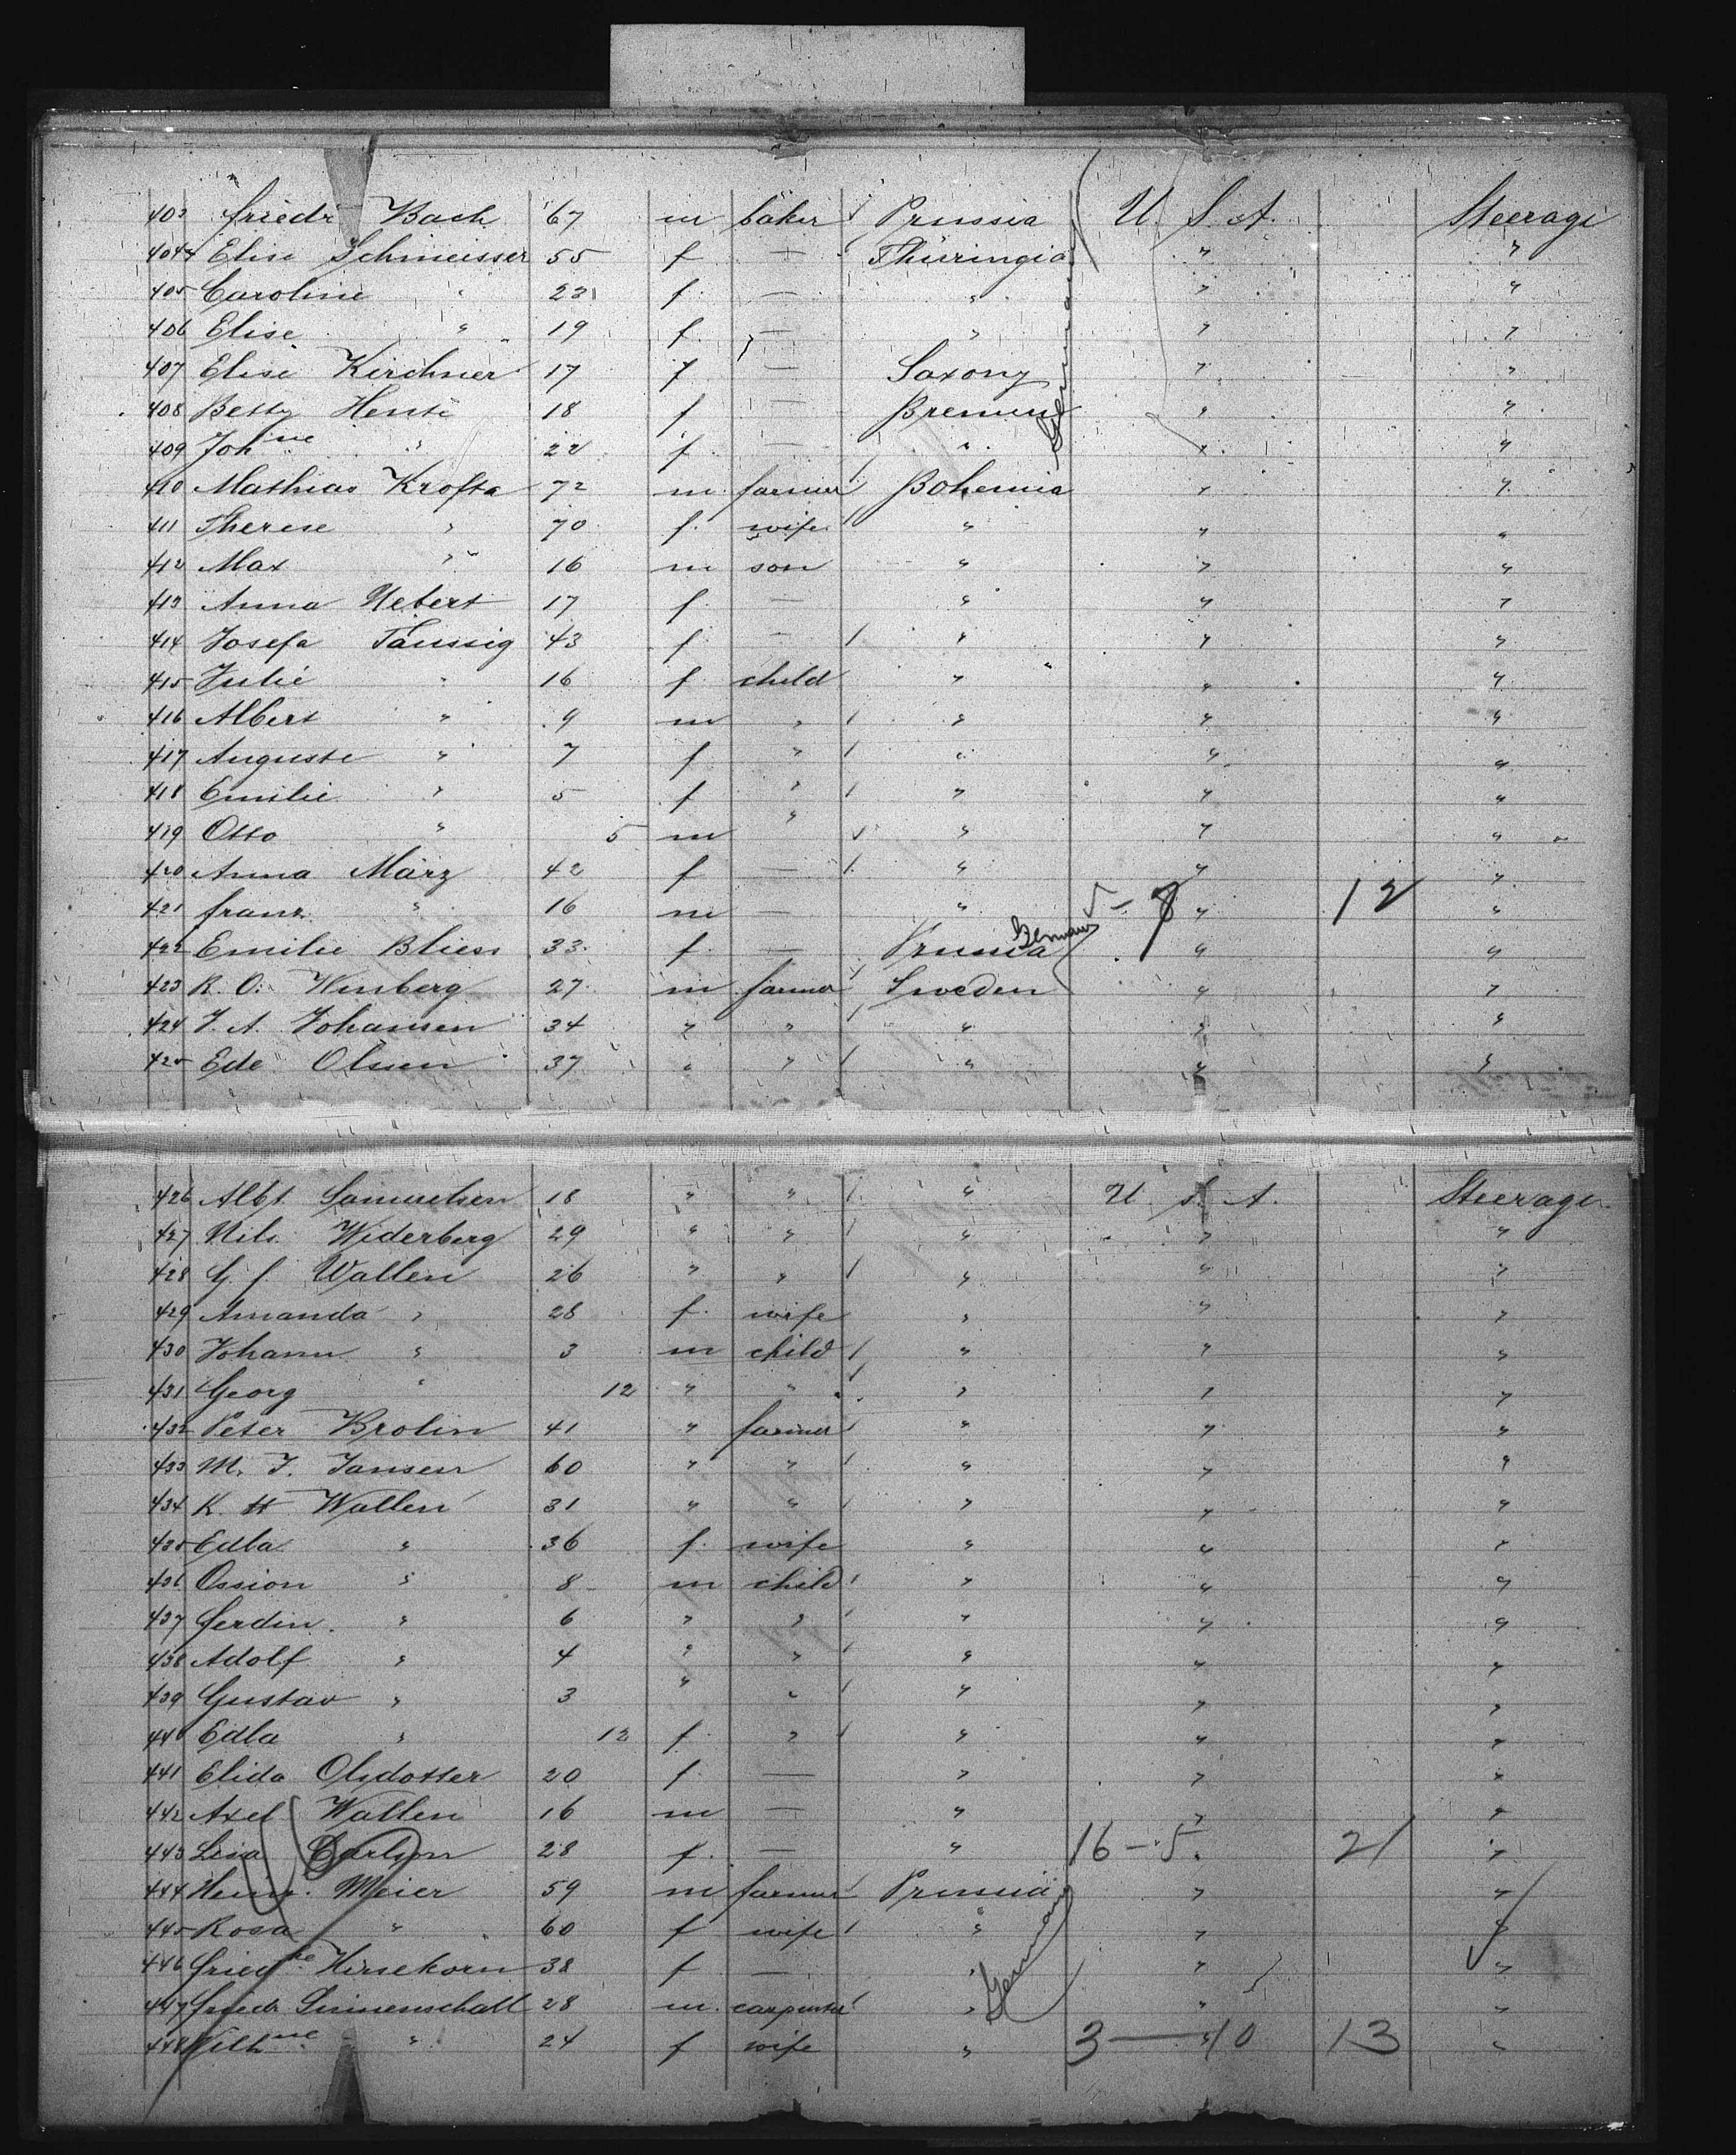 403 Friedr Bach 67 m baker Prussia U. S. A. Steerage
404 Elise Schmeisser 55 f — Thüringia " "
405 Caroline " 23 f — " " "
406 Elise " 19 f. — " " "
407 Elise Kirchner 17 f — Saxony " "
408 Betty Hente 18 f — Bremen " "
409 Joh ne " 22 f — " " "
Germany
410 Mathias Krofta 72 m. farmer Bohemia " "
411 Therese " 70 f. wife " " "
412 Max " 16 m son " " "
413 Anna Nebert 17 f. — " " "
414 Josefa Taussig 43 f — " " "
415 Julie " 16 f child " " "
416 Albert " 9 m " " " "
417 Auguste " 7 f " " " "
418 Emilie " 5 f " " " "
419 Otto " 5 m " " " "
420 Anna März 42 f — " " "
421 Franz " 16 m — " 5 - 7 " 12 "
422 Emilie Bliess 33 f. — Prussia Germany " "
423 R. O. Winberg 27 m farmer Sweden " "
424 J. A. Johansen 34 " " " " "
425 Ede Olsen 37 " " " " "
426 Albt Samuelsen 18 " " " U. S. A. Steerage
427 Nils Widerberg 29 " " " " "
428 G. f. Wallen 26 " " " " "
429 Amanda " 28 f. wife " " "
430 Johann " 3 m child " " "
431 Georg " 12 " " " " "
432 Peter Brolin 41 " farmer " " "
433 M. J. Jansen 60 " " " " "
434 K. H Wallen 31 " " " " "
435 Edla " 36 f. wife " " "
436 Ossion " 8 m child " " "
437 Ferdin. " 6 " " " " "
438 Adolf " 4 " " " " "
439 Gustav " 3 " " " " "
440 Edla " 12 f " " " "
441 Elida Olsdotter 20 f — " " "
442 Axel Wallen 16 m — " " "
443 Lisa Carlson 28 f. — " 16 - 5 21 "
444 Heinr. Meier 59 m farmer Prussia " "
445 Rosa " 60 f wife " " "
446 Fried ke Hirsekorn 38 f — " " "
Germany
447 Friedr Sinnenschall 28 m. carpenter " " "
448 Wilh ne " 24 f wife " 3 — 10 13 "